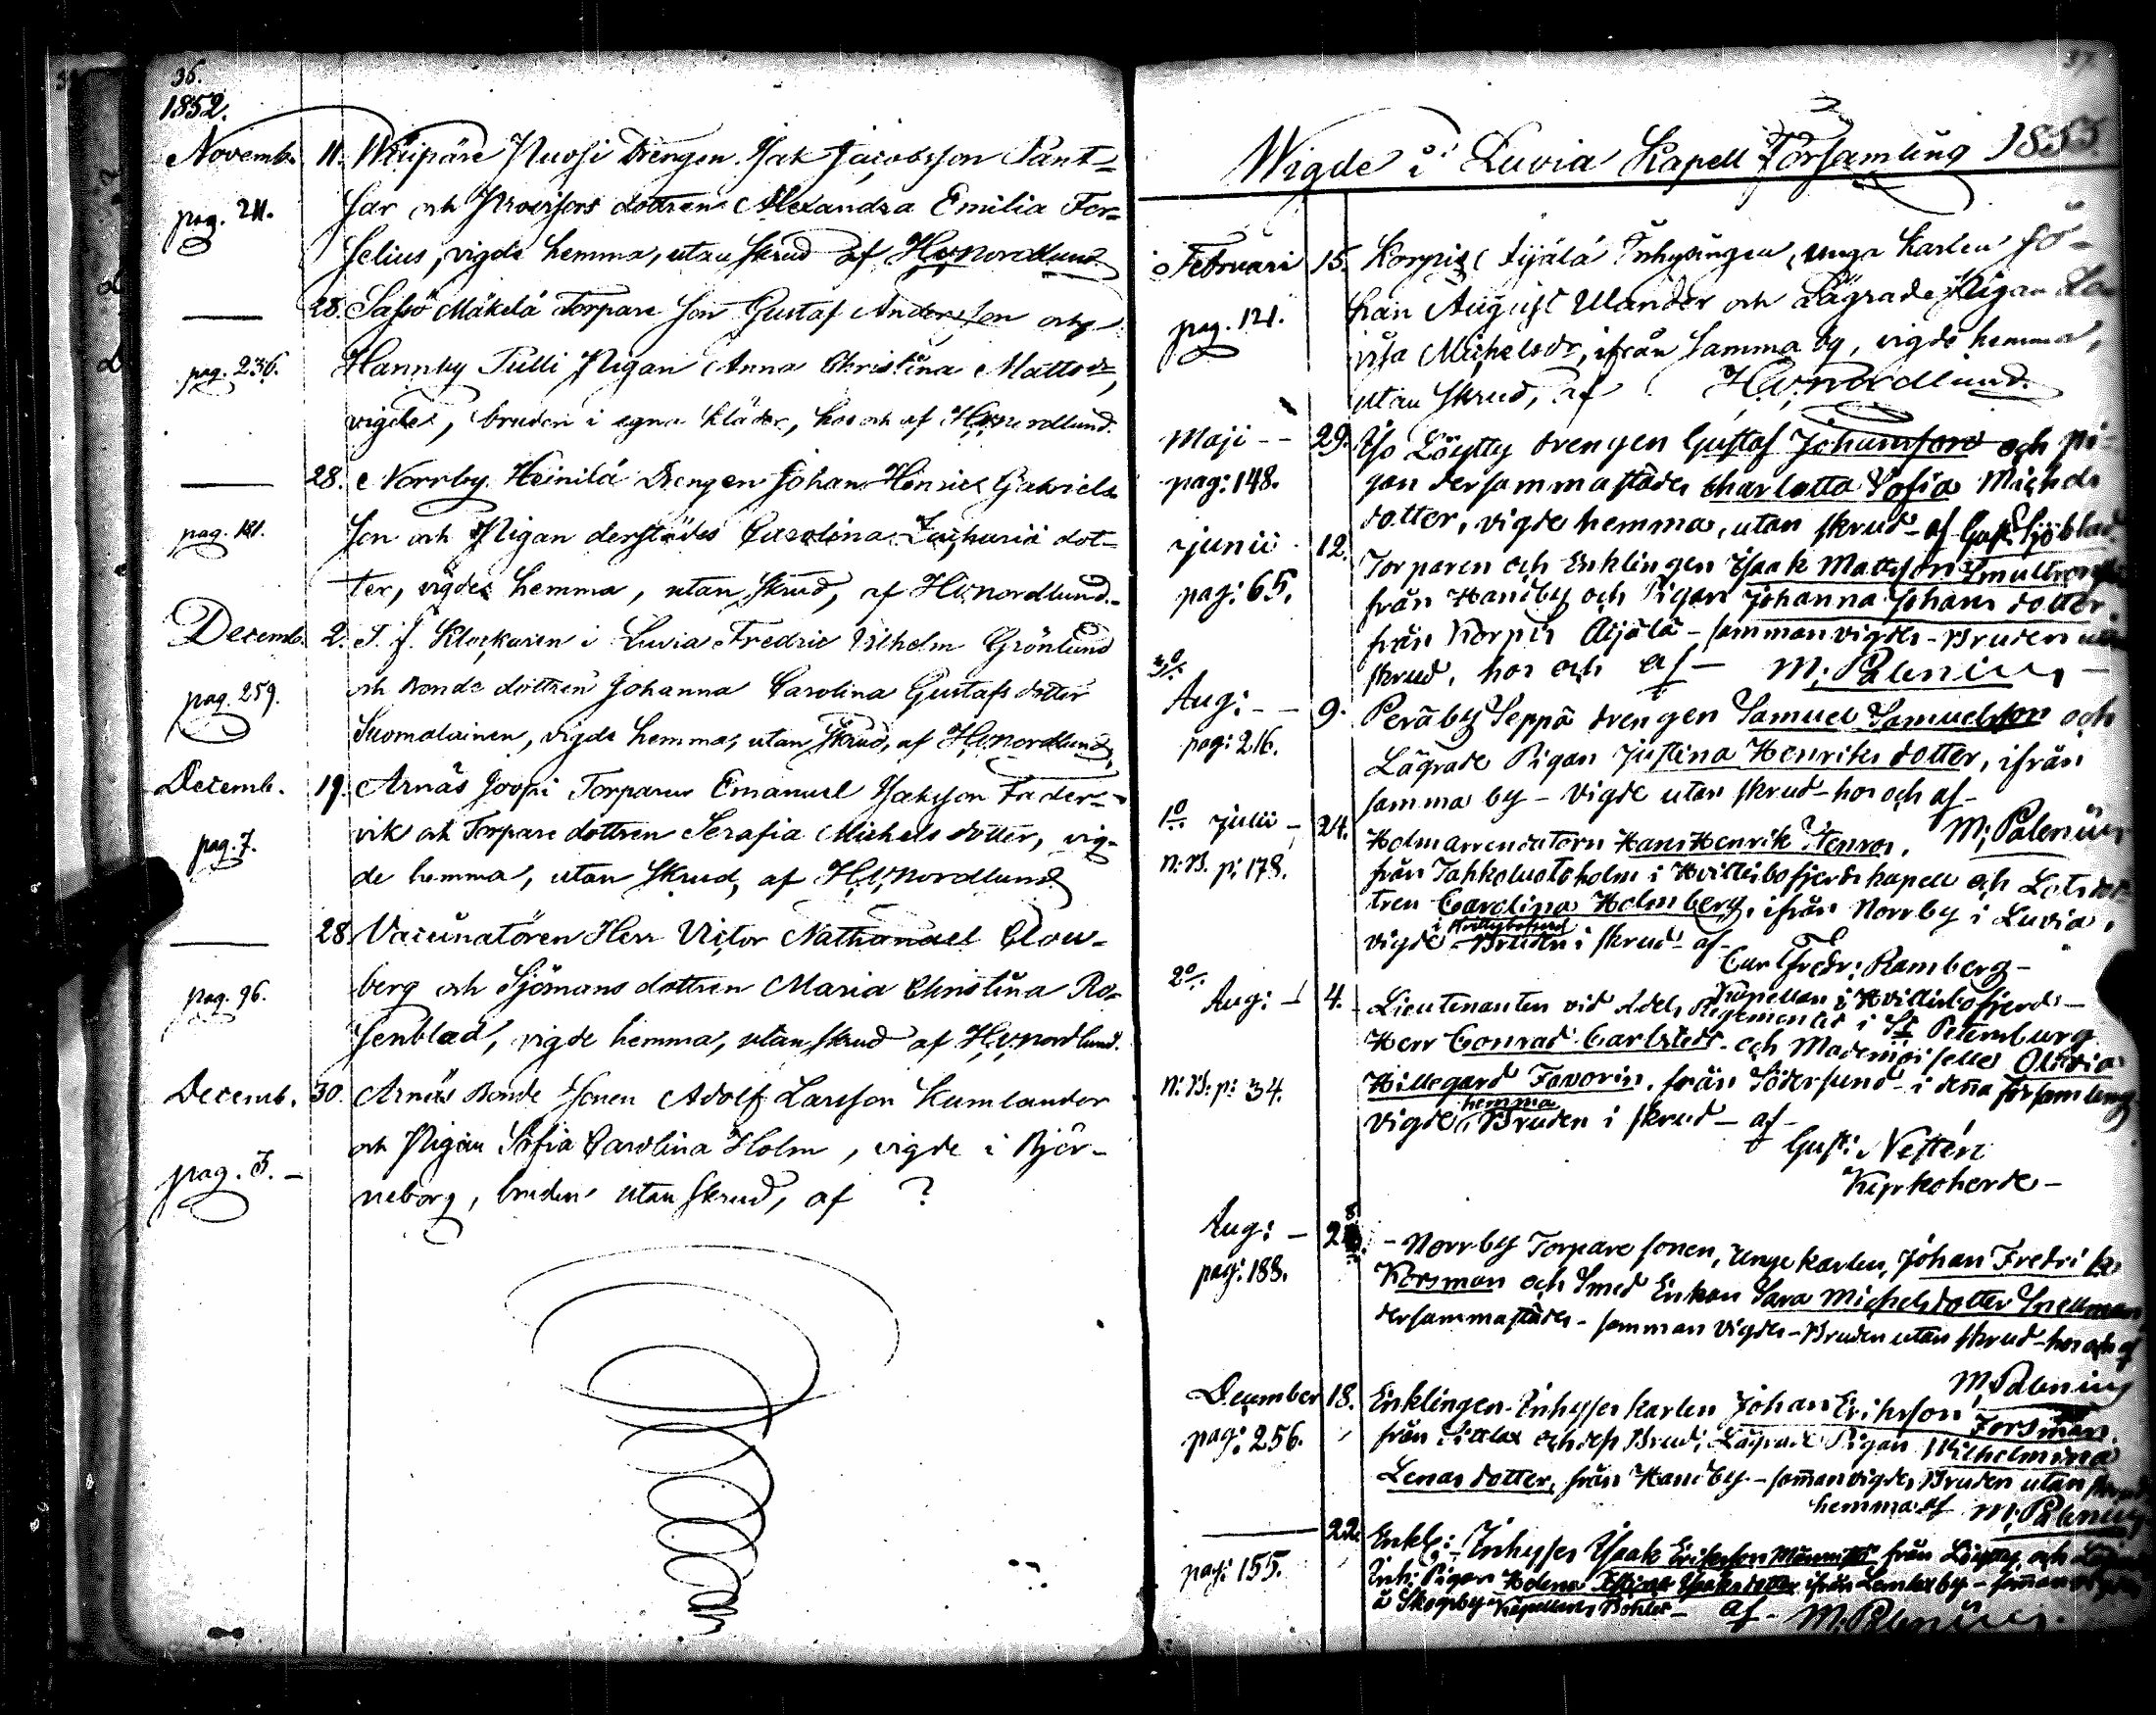 36.
1852.
Novemb. 11. Wuipäre Nuosi Drengen Isak Jacobsson Tant-
pag. 211. far och Provisors dottren Alexandra Emilia For-
selius, vigde hemma, utan skrud af H.v.Nordlund.
28. Sassö Mäkelä Torpare son Gustaf Andersson och
pag. 236. Hannby Pulli Pigan Anna Christina Mattsdr,
vigdes, bruden i egna kläder, hos och af H.v.Nordlund.
28. Norrby Heinilä Drengen Johan Henric Gabriels
pag. 181. son och Pigan derstädes Carolina Zacharia dot-
ter, vigdes hemma, utan skrud, af H.v.Nordlund.
Decemb. 2. T. f. Klockaren i Luvia Fredric Vilhelm Grönlund
pag. 259. och Bonde dottren Johanna Carolina Gustafs dotter
Suomalainen, vigde hemma, utan skrud, af H.v.Nordlund.
Decemb. 19. Arnäs Joopi Torparen Emanuel Isaksson Fader-
pag. 7. vik och Torpare dottren Serafia Michels dotter, vig-
de hemma, utan skrud, af H.v.Nordlund.
28. Vacunatören Herr Victor Nathanael Clou-
pag. 96. berg och Sjömans dottren Maria Christina Ro-
senblad, vigde hemma, utan skrud af H.v.Nordlund.
Decemb. 30. Arnäs Bonde Sonen Adolf Larsson Kumlander
pag. 3. och Pigan Sofia Carolina Holm, vigde i Björ-
neborg, bruden utan skrud, af ?
37.
Wigde i Luvia Kapell Församling 1853.
Februari 15. Korpis Äijälä Inhysingen, unga Karlen Jo-
pag. 121. han August Ulander och Lägrade Pigan Lo
visa Michelsdr, ifrån samma by, vigde hemma,
utan skrud, af H.v.Nordlund.
Maji - - 29. Iso Löytty drengen Gustaf Johansson och pi-
pag: 148. gan dersammastädes Charlotta Sofia Michels
dotter, vigde hemma, utan skrud - af Gust. Sjöblad.
Junii 12. Torparen och Enklingen Isaak Mattsson
pag: 65. från Handby och Pigan Johanna Johans dotter,
från Korpis Äijälä - samman vigdes - Bruden utan
skrud, hos och af - M: Palenius -
3o/. Aug: - - 9. Peräby Seppä drengen Samuel Samuelsson och
pag: 216. Lägrade Pigan Justina Henriks dotter, ifrån
samma by - Vigde utan skrud - hos och af -
M: Palenius
1o/. Julii - 24. Holmarrendatorn Hans Henrik Stenros,
N:B. p: 178. från Tahkoluoto holm i Hvittisbofjerds kapell och Lots dot-
tren Carolina Holmberg, ifrån Norrby i Luvia,
i Hvittisbofjerd
vigde - Bruden i skrud - af -
Carl Fredr: Ramberg -
Kapellan i Hvittisbofjerd -
2o/. Aug: - 4. Lieutenanten vid Adels Regementet i St Petersburg
Herr Conrad Carlstedt och Mademoiselle Olivia
N:B: p: 34. Hillegard Favorin, från Södersund i denna församling
hemma
vigde, Bruden i skrud - af -
Gust: Nestén
Kyrkoherde -
Aug: - 28. - Norrby Torpare sonen, Unge karlen, Johan Fredrik
pag: 188. Korsman och Smed Enkan Sara Michelsdotter Snellman
dersammastädes - samman vigdes - Bruden utan skrud - hos och af
M: Palenius
December 18. Enklingen Inhyses karlen Johan Eriksson Forsman,
pag: 256. från Littlax och dess Brud, Lägrade Pigan Wilhelmina
Lenas dotter, från Handby - samanvigdes, Bruden utan skrud,
hemma af M: Palenius
22. Enkl: Inhyses Isaak Eriksson från Löytty och
pag: 155. Inh: Pigan Helena Isaksdotter ifrån Lemlaxby -
å Skogsby Kapellans Bohlet - af - M. Palenius.